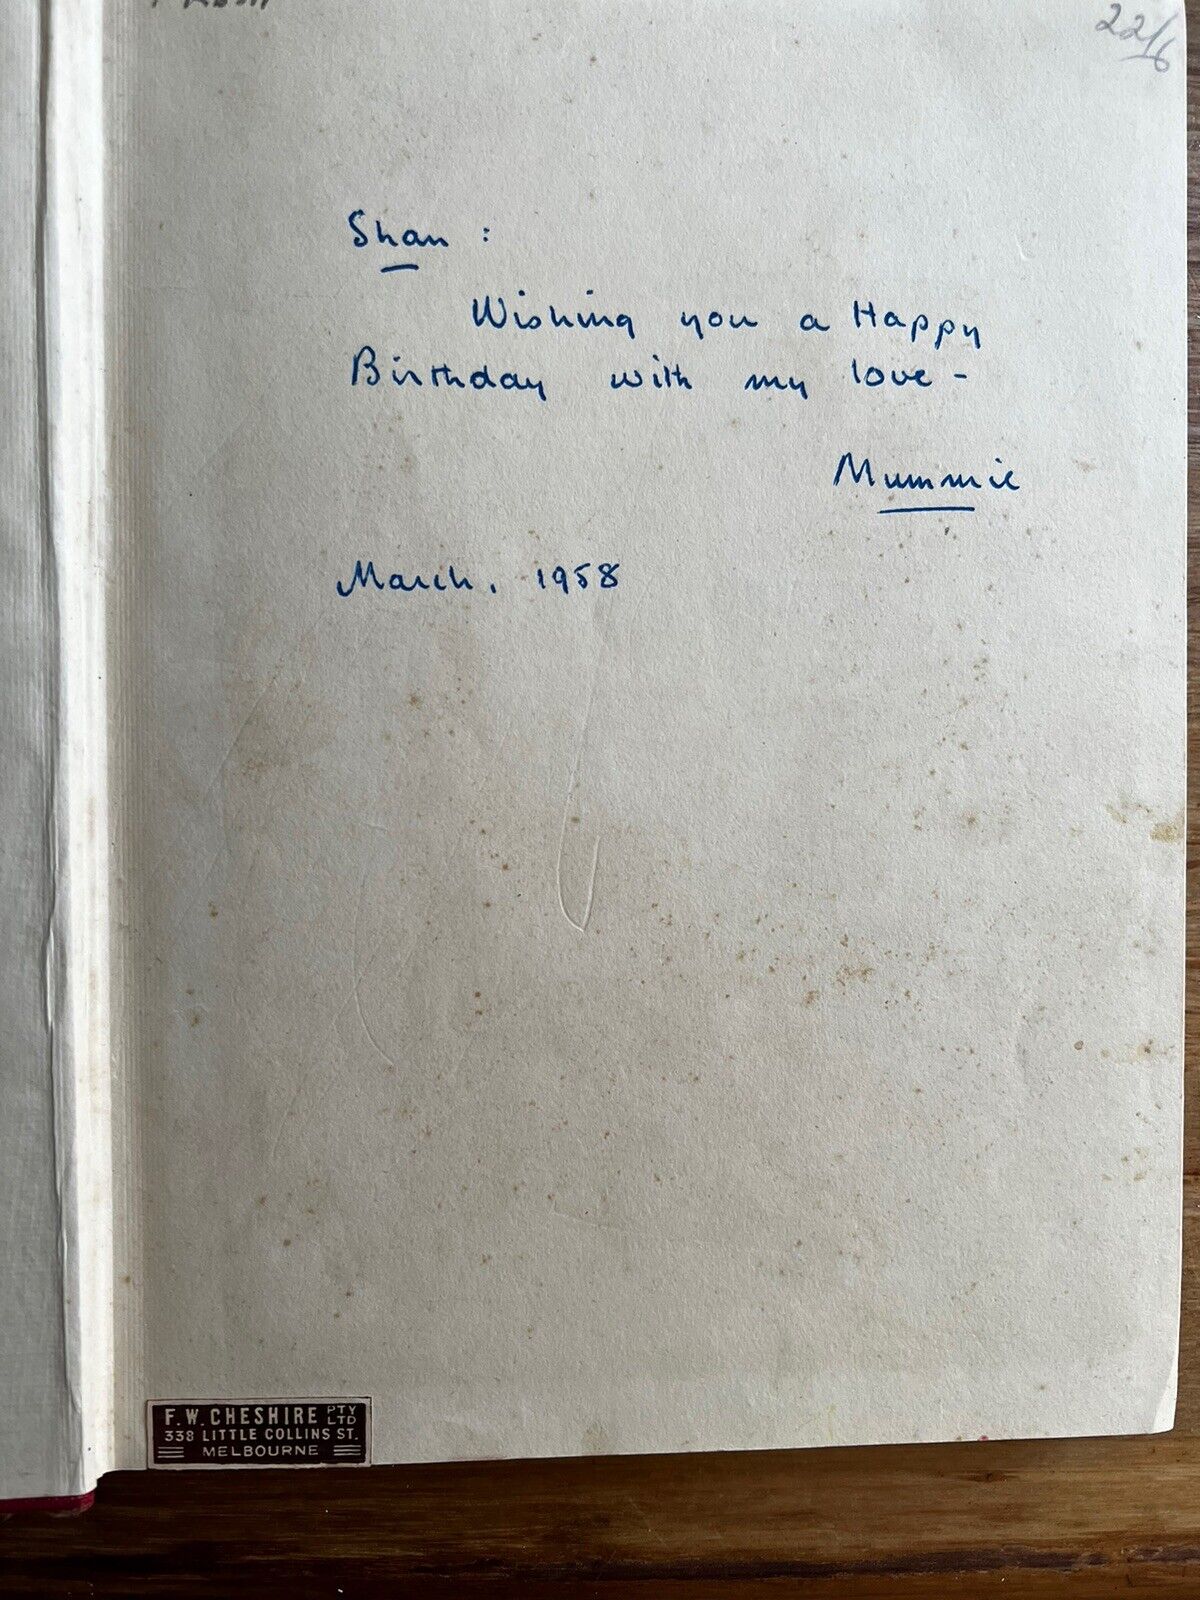 22/6
Shan :
Wishing you a Happy
Birthday with my love -
Mummie
March, 1958
F. W. CHESHIRE PTY LTD
338 LITTLE COLLINS ST.
MELBOURNE